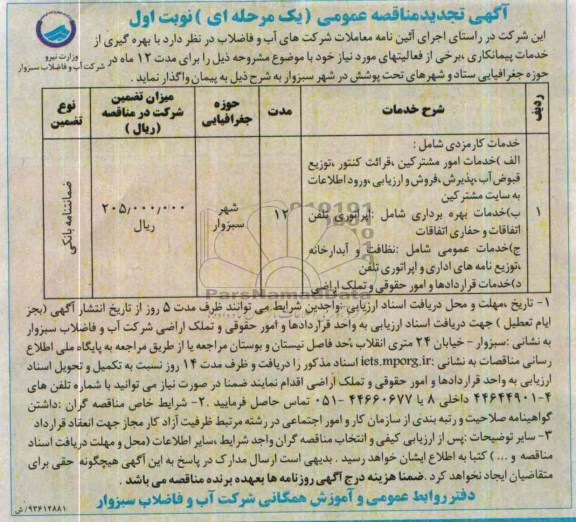 آگهی تجدیدمناقصه عمومی (یک مرحله ای) نوبت اول
وزارت نیرو
شرکت آب و فاضلاب سبزوار
این شرکت در راستای اجرای آئین نامه معاملات شرکت های آب و فاضلاب در نظر دارد با بهره گیری از
خدمات پیمانکاری ،برخی از فعالیتهای مورد نیاز خود با موضوع مشروحه ذیل را برای مدت ۱۲ ماه در
حوزه جغرافیایی ستاد و شهرهای تحت پوشش در شهر سبزوار به شرح ذیل به پیمان واگذار نماید .
ردیف
شرح خدمات
مدت
حوزه جغرافیایی
میزان تضمین شرکت در مناقصه (ریال)
نوع تضمین
۱
خدمات کارمزدی شامل :
الف )خدمات امور مشترکین ،قرائت کنتور ،توزیع
قبوض آب،پذیرش ،فروش و ارزیابی ،ورود اطلاعات
به سایت مشترکین
ب)خدمات بهره برداری شامل :اپراتوری تلفن
اتفاقات و حفاری اتفاقات
ج)خدمات عمومی شامل :نظافت و آبدارخانه
،توزیع نامه های اداری و اپراتوری تلفن
د)خدمات قراردادها و امور حقوقی و تملک اراضی
۱۲
شهر سبزوار
۲۰۵٫۰۰۰٫۰۰۰
ریال
ضمانتنامه بانکی
ParsNamadData
۱- تاریخ ،مهلت و محل دریافت اسناد ارزیابی :واجدین شرایط می توانند ظرف مدت ۵ روز از تاریخ انتشار آگهی (بجز
ایام تعطیل ) جهت دریافت اسناد ارزیابی به واحد قراردادها و امور حقوقی و تملک اراضی شرکت آب و فاضلاب سبزوار
به نشانی :سبزوار - خیابان ۲۴ متری انقلاب ،حد فاصل نیستان و بوستان مراجعه یا از طریق مراجعه به پایگاه ملی اطلاع
رسانی مناقصات به نشانی :iets.mporg.ir اسناد مذکور را دریافت و ظرف مدت ۱۴ روز نسبت به تکمیل و تحویل اسناد
ارزیابی به واحد قراردادها و امور حقوقی و تملک اراضی اقدام نمایند ضمنا در صورت نیاز می توانید با شماره تلفن های
۴۴۶۴۴۹۰۱-۴ داخلی ۸ یا ۴۴۶۶۰۶۷۷ -۰۵۱ تماس حاصل فرمایید .۲- شرایط خاص مناقصه گران :داشتن
گواهینامه صلاحیت و رتبه بندی از سازمان کار و امور اجتماعی در رشته مرتبط ظرفیت آزاد کار مجاز جهت انعقاد قرارداد
۳- سایر توضیحات :پس از ارزیابی کیفی و انتخاب مناقصه گران واجد شرایط ،سایر اطلاعات (محل و مهلت دریافت اسناد
مناقصه و ...) کتبا به اطلاع ایشان خواهد رسید . بدیهی است ارسال مدارک در پاسخ به این آگهی هیچگونه حقی برای
متقاضیان ایجاد نخواهد کرد .ضمنا هزینه درج آگهی روزنامه ها بعهده برنده مناقصه می باشد .
دفتر روابط عمومی و آموزش همگانی شرکت آب و فاضلاب سبزوار
۹۳۶۱۲۸۸۱/ش